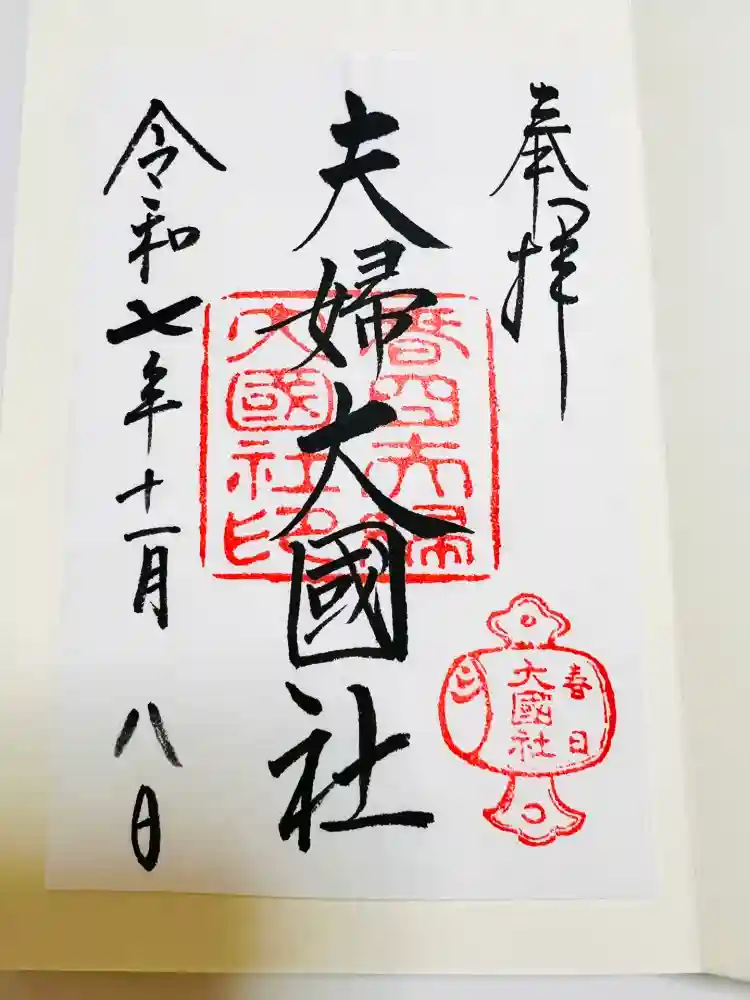 奉拝
春日夫婦
大國社印
夫婦大國社
春日
大國社
令和七年十一月八日